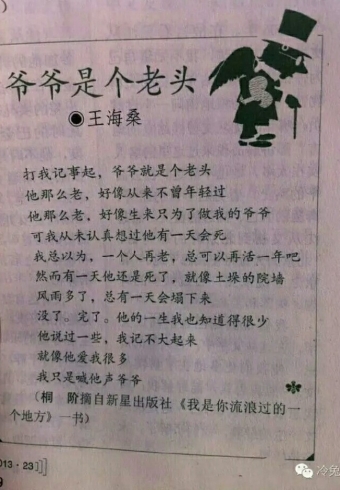 爷爷是个老头
◉王海桑
打我记事起，爷爷就是个老头
他那么老，好像从来不曾年轻过
他那么老，好像生来只为了做我的爷爷
可我从未认真想过他有一天会死
我总以为，一个人再老，总可以再活一年吧
然而有一天他还是死了，就像土垛的院墙
风雨多了，总有一天会塌下来
没了。完了。他的一生我也知道得很少
他说过一些，我记不大起来
就像他爱我很多
我只是喊他声爷爷
（桐　阶摘自新星出版社《我是你流浪过的一
个地方》一书）
013·23
9
冷兔